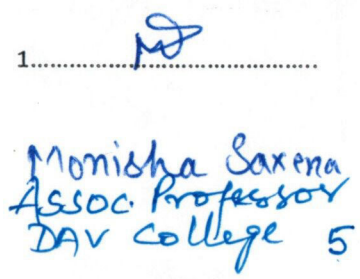 1....................................................
Monisha Saxena
Assoc. Professor
DAV College 5